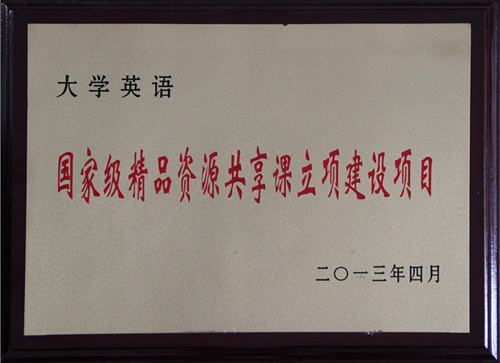 大学英语
国家级精品资源共享课立项建设项目
二〇一三年四月